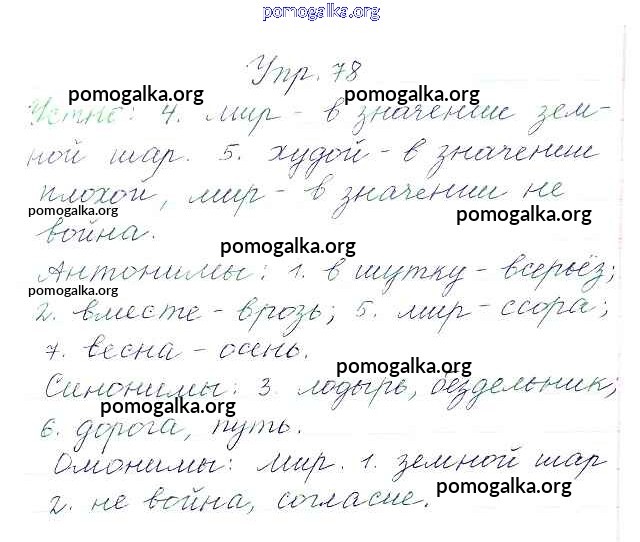 pomogalka.org
Упр. 78
pomogalka.org pomogalka.org
Устно: 4. мир - в значение зем-
ной шар. 5. худой - в значении
плохой, мир - в значении не
pomogalka.org pomogalka.org
война.
pomogalka.org
Антонимы: 1. в шутку - всерьёз;
pomogalka.org
2. вместе - врозь; 5. мир - ссора;
7. весна - осень.
pomogalka.org
Синонимы: 3. лодырь, бездельник;
pomogalka.org
6. дорога, путь.
Омонимы: мир. 1. земной шар
pomogalka.org
2. не война, согласие.